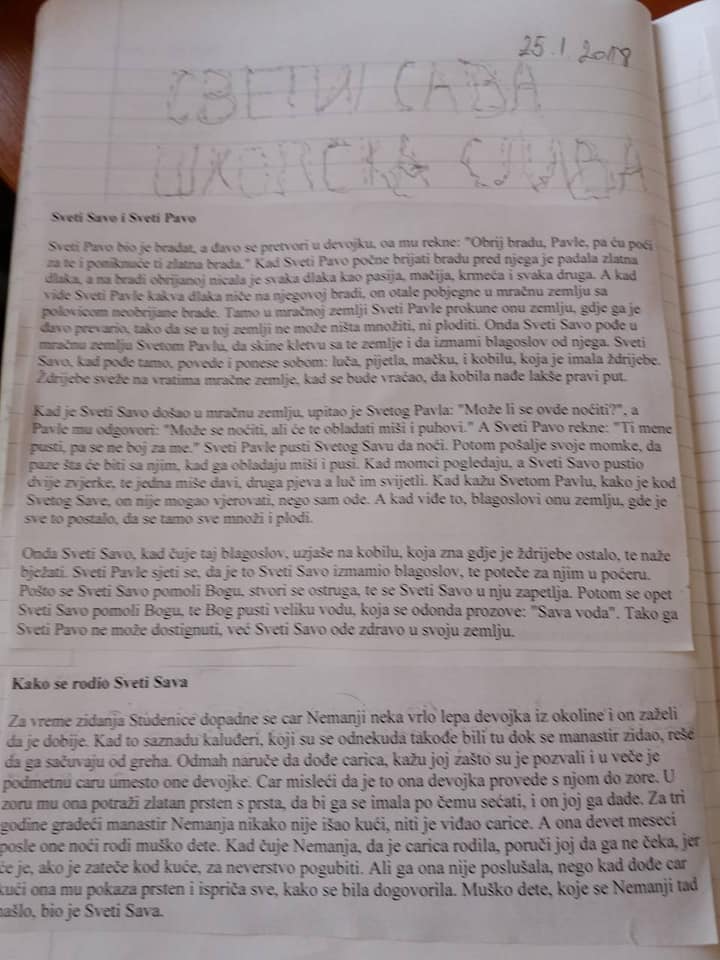 25.1.2018
СВЕТИ САВА
ШКОЛСКА СЛАВА
Sveti Savo i Sveti Pavo
Sveti Pavo bio je bradat, a đavo se pretvori u devojku, oa mu rekne: "Obrij bradu, Pavle, pa ću poći
za te i poniknuće ti zlatna brada." Kad Sveti Pavo počne brijati bradu pred njega je padala zlatna
dlaka, a na bradi obrijanoj nicala je svaka dlaka kao pasija, mačija, krmeća i svaka druga. A kad
vide Sveti Pavle kakva dlaka niče na njegovoj bradi, on otale pobjegne u mračnu zemlju sa
polovicom neobrijane brade. Tamo u mračnoj zemlji Sveti Pavle prokune onu zemlju, gdje ga je
đavo prevario, tako da se u toj zemlji ne može ništa množiti, ni ploditi. Onda Sveti Savo pođe u
mračnu zemlju Svetom Pavlu, da skine kletvu sa te zemlje i da izmami blagoslov od njega. Sveti
Savo, kad pođe tamo, povede i ponese sobom: luča, pijetla, mačku, i kobilu, koja je imala ždrijebe.
Ždrijebe sveže na vratima mračne zemlje, kad se bude vraćao, da kobila nađe lakše pravi put.
Kad je Sveti Savo došao u mračnu zemlju, upitao je Svetog Pavla: "Može li se ovde noćiti?", a
Pavle mu odgovori: "Može se noćiti, ali će te obladati miši i puhovi." A Sveti Pavo rekne: "Ti mene
pusti, pa se ne boj za me." Sveti Pavle pusti Svetog Savu da noći. Potom pošalje svoje momke, da
paze šta će biti sa njim, kad ga obladaju miši i pusi. Kad momci pogledaju, a Sveti Savo pustio
dvije zvjerke, te jedna miše davi, druga pjeva a luč im svijetli. Kad kažu Svetom Pavlu, kako je kod
Svetog Save, on nije mogao vjerovati, nego sam ode. A kad viđe to, blagoslovi onu zemlju, gde je
sve to postalo, da se tamo sve množi i plodi.
Onda Sveti Savo, kad čuje taj blagoslov, uzjaše na kobilu, koja zna gdje je ždrijebe ostalo, te naže
bježati. Sveti Pavle sjeti se, da je to Sveti Savo izmamio blagoslov, te poteče za njim u poćeru.
Pošto se Sveti Savo pomoli Bogu, stvori se ostruga, te se Sveti Savo u nju zapetlja. Potom se opet
Sveti Savo pomoli Bogu, te Bog pusti veliku vodu, koja se odonda prozove: "Sava voda". Tako ga
Sveti Pavo ne može dostignuti, već Sveti Savo ode zdravo u svoju zemlju.
Kako se rodio Sveti Sava
Za vreme zidanja Studenice dopadne se car Nemanji neka vrlo lepa devojka iz okoline i on zaželi
da je dobije. Kad to saznadu kaluđeri, koji su se odnekuda takođe bili tu dok se manastir zidao, reše
da ga sačuvaju od greha. Odmah naruče da dođe carica, kažu joj zašto su je pozvali i u veče je
podmetnu caru umesto one devojke. Car misleći da je to ona devojka provede s njom do zore. U
zoru mu ona potraži zlatan prsten s prsta, da bi ga se imala po čemu sećati, i on joj ga dade. Za tri
godine gradeći manastir Nemanja nikako nije išao kući, niti je viđao carice. A ona devet meseci
posle one noći rodi muško dete. Kad čuje Nemanja, da je carica rodila, poruči joj da ga ne čeka, jer
će je, ako je zateče kod kuće, za neverstvo pogubiti. Ali ga ona nije poslušala, nego kad dođe car
kući ona mu pokaza prsten i ispriča sve, kako se bila dogovorila. Muško dete, koje se Nemanji tad
našlo, bio je Sveti Sava.